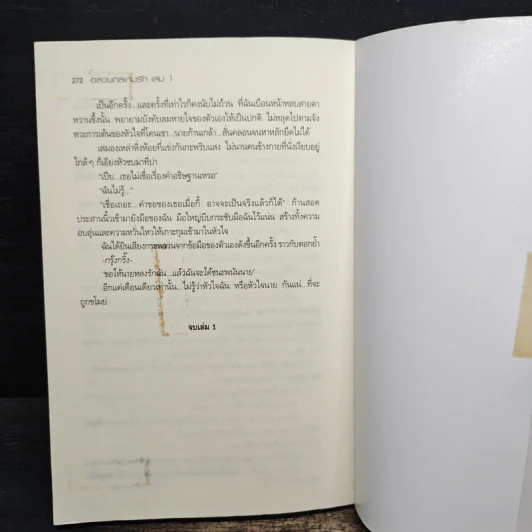 272 อลวนกลเกมรัก เล่ม 1
เป็นอีกครั้ง...และครั้งที่เท่าไรก็คงนับไม่ถ้วน ที่ฉันเบือนหน้าหลบสายตา
หวานซึ้งนั้น พยายามบังคับลมหายใจของตัวเองให้เป็นปกติ ไม่หลุดไปตามจัง
หวะการเต้นของหัวใจที่โดนเขา...นายก้านเกล้า...สั่นคลอนจนหาหลักยึดไม่ได้
เสมองเหล่าหิ่งห้อยที่แข่งกันกะพริบแสง ไม่นานคนข้างกายที่นั่งเงียบอยู่
ใกล้ๆ ก็เอียงหัวซบมาที่บ่า
"เปีย...เธอไม่เชื่อเรื่องคำอธิษฐานเหรอ"
"ฉันไม่รู้..."
"เชื่อเถอะ...คำขอของเธอเมื่อกี้ อาจจะเป็นจริงแล้วก็ได้" ก้านสอด
ประสานนิ้วเข้ามายังมือของฉัน มือใหญ่บีบกระชับมือฉันไว้แน่น สร้างทั้งความ
อบอุ่นและความหวั่นไหวให้เกาะกุมเข้ามาในหัวใจ
ฉันได้ยินเสียงกระพรวนจากข้อมือของตัวเองดังขึ้นอีกครั้ง ราวกับตอกย้ำ
-กรุ๊งกริ๊ง-
'ขอให้นายหลงรักฉัน...แล้วฉันจะได้ชนะพนันนาย'
อีกแค่เดือนเดียวเท่านั้น...ไม่รู้ว่าหัวใจฉัน หรือหัวใจนาย กันแน่...ที่จะ
ถูกขโมย
จบเล่ม 1